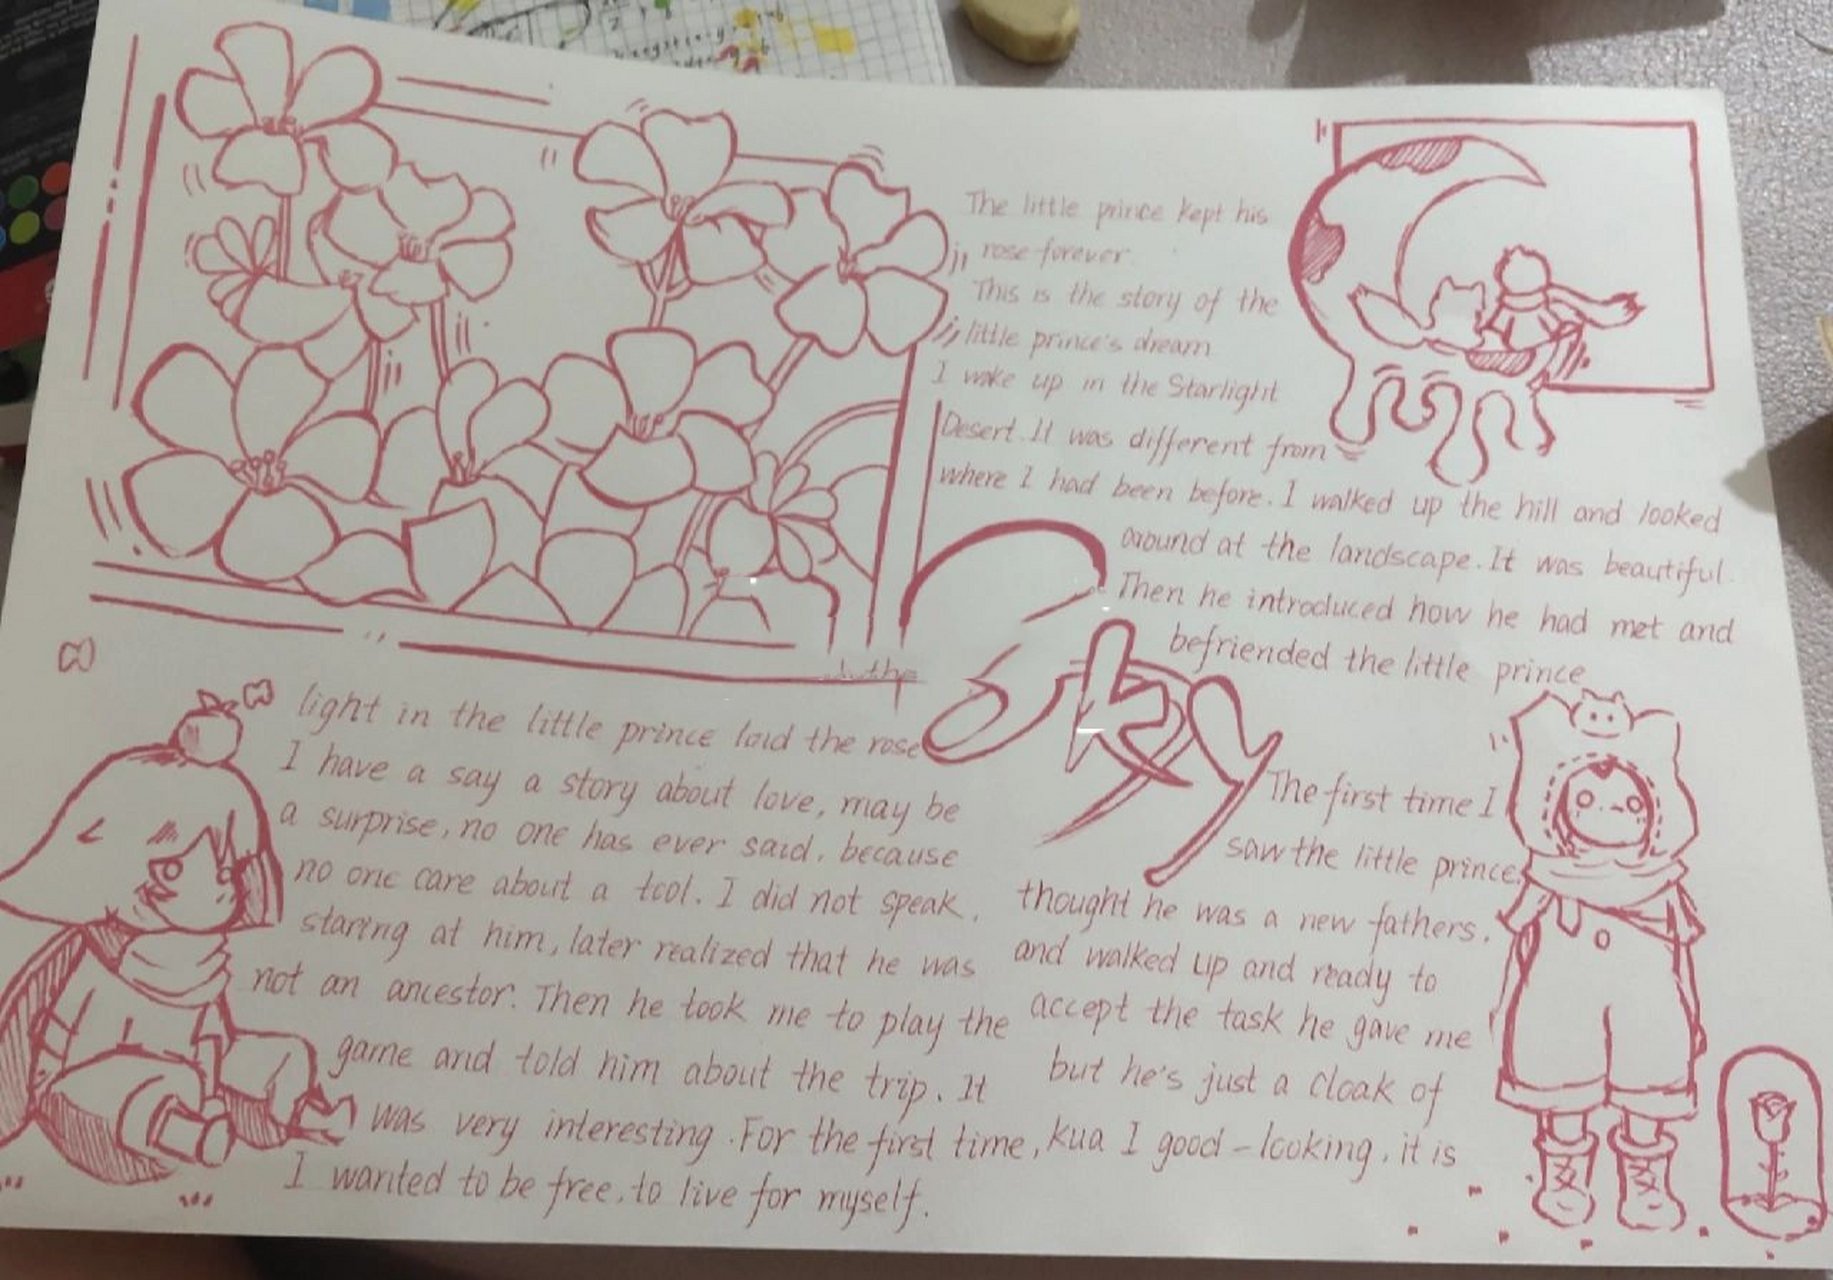 The little prince kept his
rose forever
This is the story of the
little prince's dream
I wake up in the Starlight
Desert. It was different from
where I had been before. I walked up the hill and looked
around at the landscape. It was beautiful.
Then he introduced how he had met and
befriended the little prince
Sky
The first time I
saw the little prince.
thought he was a new fathers.
and walked up and ready to
accept the task he gave me
but he's just a cloak of
kua I good-looking, it is
light in the little prince laid the rose
I have a say a story about love, may be
a surprise, no one has ever said, because
no one care about a tool. I did not speak,
staring at him, later realized that he was
not an ancestor. Then he took me to play the
game and told him about the trip. It
was very interesting. For the first time,
I wanted to be free, to live for myself.